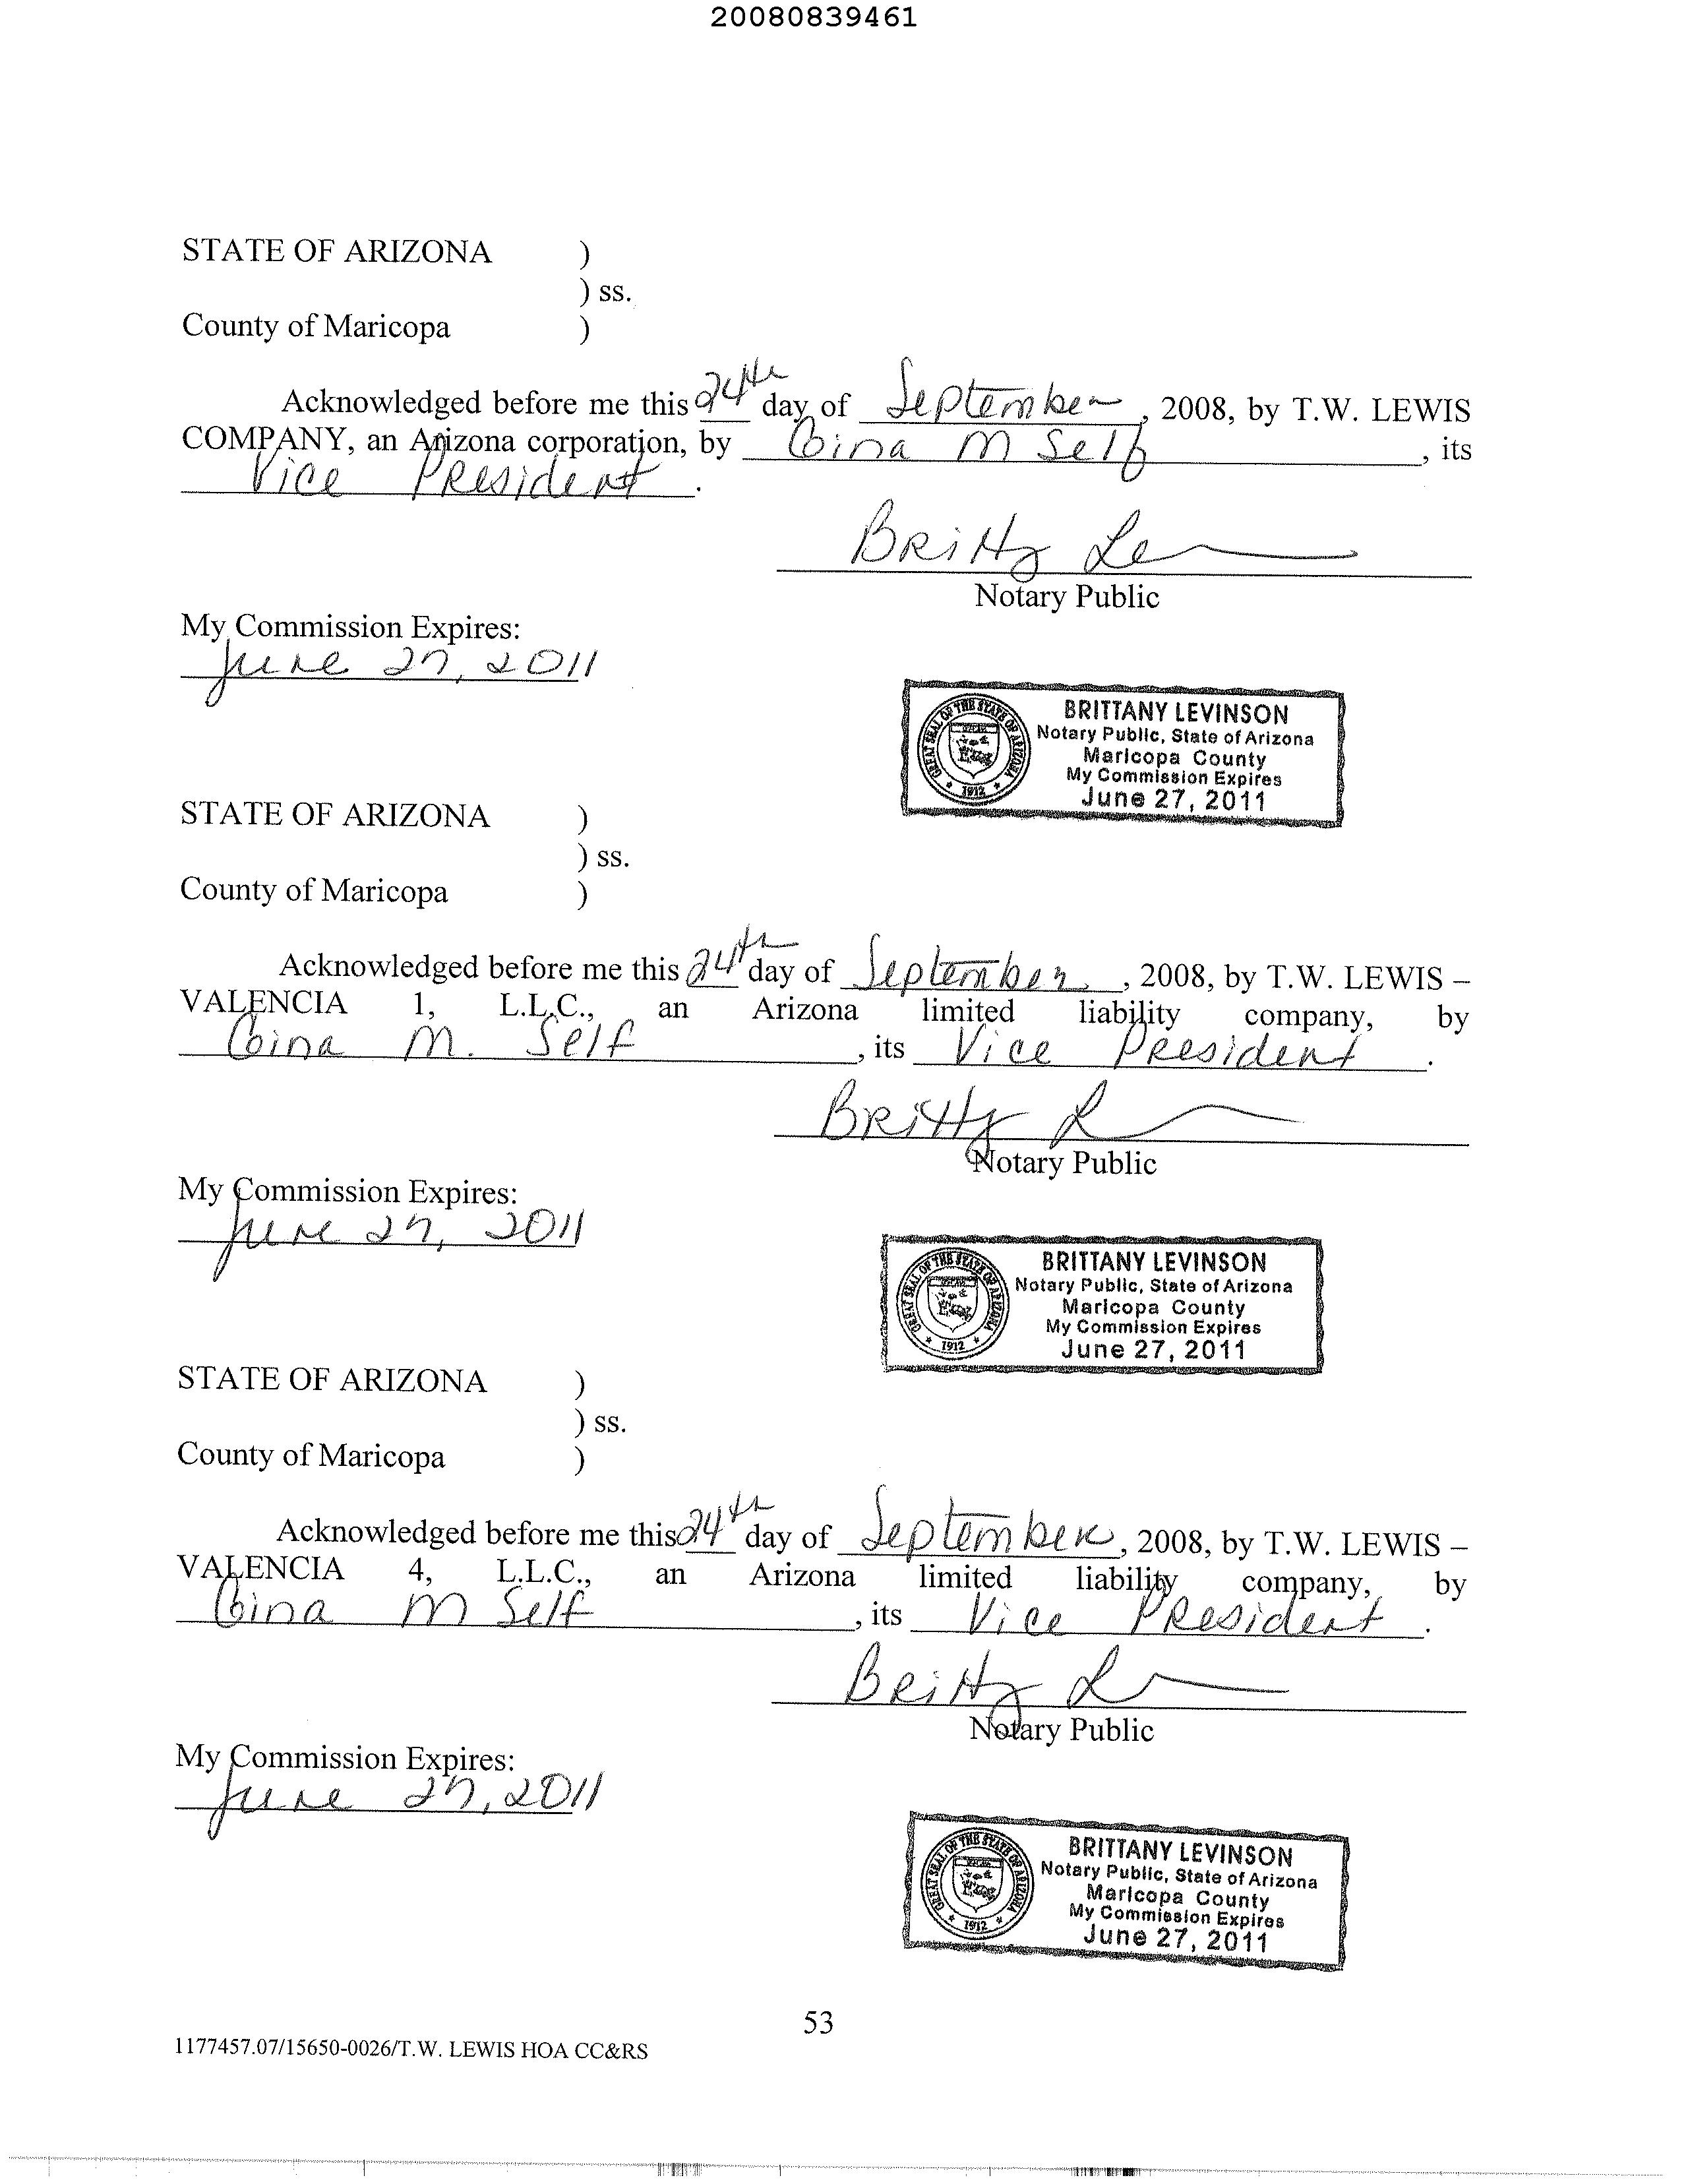 20080839461
STATE OF ARIZONA )
) ss.
County of Maricopa )
Acknowledged before me this 24th day of September, 2008, by T.W. LEWIS
COMPANY, an Arizona corporation, by Gina M Self, its
Vice President.
Britty Le
Notary Public
My Commission Expires:
June 27, 2011
GREAT SEAL OF THE STATE OF ARIZONA
1912
BRITTANY LEVINSON
Notary Public, State of Arizona
Maricopa County
My Commission Expires
June 27, 2011
STATE OF ARIZONA )
) ss.
County of Maricopa )
Acknowledged before me this 24th day of September, 2008, by T.W. LEWIS –
VALENCIA 1, L.L.C., an Arizona limited liability company, by
Gina M. Self, its Vice President.
Britty L
Notary Public
My Commission Expires:
June 27, 2011
GREAT SEAL OF THE STATE OF ARIZONA
1912
BRITTANY LEVINSON
Notary Public, State of Arizona
Maricopa County
My Commission Expires
June 27, 2011
STATE OF ARIZONA )
) ss.
County of Maricopa )
Acknowledged before me this 24th day of September, 2008, by T.W. LEWIS –
VALENCIA 4, L.L.C., an Arizona limited liability company, by
Gina M Self, its Vice President.
Britty L
Notary Public
My Commission Expires:
June 27, 2011
GREAT SEAL OF THE STATE OF ARIZONA
1912
BRITTANY LEVINSON
Notary Public, State of Arizona
Maricopa County
My Commission Expires
June 27, 2011
53
1177457.07/15650-0026/T.W. LEWIS HOA CC&RS